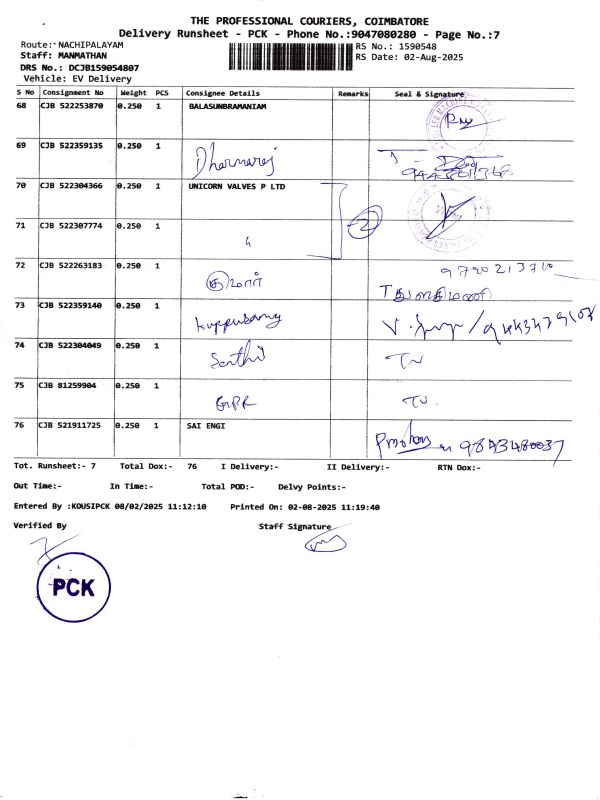 THE PROFESSIONAL COURIERS, COIMBATORE
Delivery Runsheet - PCK - Phone No.:9047080280 - Page No.:7
Route: NACHIPALAYAM RS No.: 1590548
Staff: MANMATHAN RS Date: 02-Aug-2025
DRS No.: DCJB159054807
Vehicle: EV Delivery
S No Consignment No Weight PCS Consignee Details Remarks Seal & Signature
68 CJB 522253870 0.250 1 BALASUNBRAMANIAM
69 CJB 522359135 0.250 1 Dharmaraj
70 CJB 522304366 0.250 1 UNICORN VALVES P LTD
71 CJB 522307774 0.250 1 2
72 CJB 522263183 0.250 1 குமார்
73 CJB 522359140 0.250 1 Kuppusamy
74 CJB 522304049 0.250 1 Senthil
75 CJB 81259904 0.250 1 GPR
76 CJB 521911725 0.250 1 SAI ENGI 9843480037
Tot. Runsheet:- 7 Total Dox:- 76 I Delivery:- II Delivery:- RTN Dox:-
Out Time:- In Time:- Total POD:- Delvy Points:-
Entered By :KOUSIPCK 08/02/2025 11:12:10 Printed On: 02-08-2025 11:19:40
Verified By Staff Signature
PCK